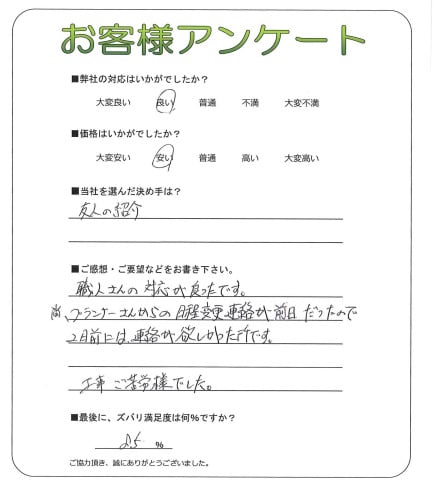 お客様アンケート
■弊社の対応はいかがでしたか？
大変良い 良い 普通 不満 大変不満
■価格はいかがでしたか？
大変安い 安い 普通 高い 大変高い
■当社を選んだ決め手は？
友人の紹介
■ご感想・ご要望などをお書き下さい。
職人さんの対応が良ったです。
尚、プランナーさんからの日程変更連絡が前日だったので
2日前には、連絡が欲しかった所です。
工事ご苦労様でした。
■最後に、ズバリ満足度は何%ですか？
85 %
ご協力頂き、誠にありがとうございました。